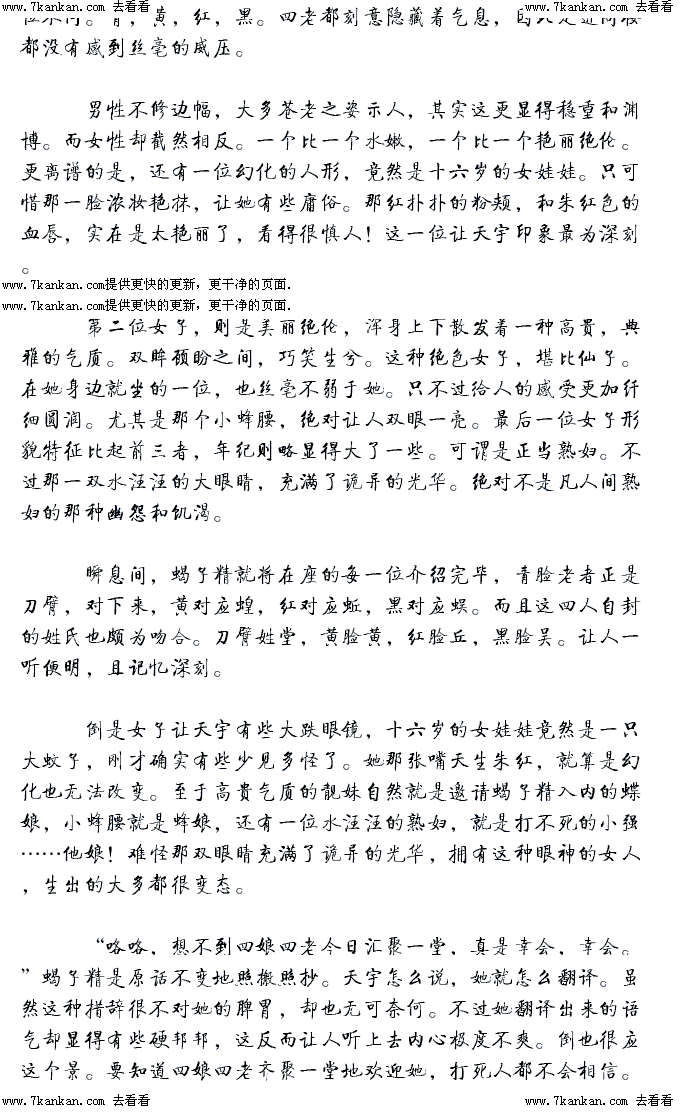 www.7kankan.com 去看看 www.7kankan.com 去看看 www.7kankan.com 去看看
青，黄，红，黑。四老都刻意隐藏着气息，
都没有感到丝毫的威压。
男性不修边幅，大多苍老之姿示人，其实这更显得稳重和渊
博。而女性却截然相反。一个比一个水嫩，一个比一个艳丽绝伦。
更离谱的是，还有一位幻化的人形，竟然是十六岁的女娃娃。只可
惜那一脸浓妆艳抹，让她有些庸俗。那红扑扑的粉颊，和朱红色的
血唇，实在是太艳丽了，看得很慎人！这一位让天宇印象最为深刻
。
www.7kankan.com提供更快的更新，更干净的页面.
www.7kankan.com提供更快的更新，更干净的页面.
第二位女子，则是美丽绝伦，浑身上下散发着一种高贵，典
雅的气质。双眸顾盼之间，巧笑生兮。这种绝色女子，堪比仙子。
在她身边就坐的一位，也丝毫不弱于她。只不过给人的感受更加纤
细圆润。尤其是那个小蜂腰，绝对让人双眼一亮。最后一位女子形
貌特征比起前三者，年纪则略显得大了一些。可谓是正当熟妇。不
过那一双水汪汪的大眼睛，充满了诡异的光华。绝对不是凡人间熟
妇的那种幽怨和饥渴。
瞬息间，蝎子精就将在座的每一位介绍完毕，青脸老者正是
刀臂，对下来，黄对应蝗，红对应蚯，黑对应蜈。而且这四人自封
的姓氏也颇为吻合。刀臂姓堂，黄脸黄，红脸丘，黑脸吴。让人一
听便明，且记忆深刻。
倒是女子让天宇有些大跌眼镜，十六岁的女娃娃竟然是一只
大蚊子，刚才确实有些少见多怪了。她那张嘴天生朱红，就算是幻
化也无法改变。至于高贵气质的靓妹自然就是邀请蝎子精入内的蝶
娘，小蜂腰就是蜂娘，还有一位水汪汪的熟妇，就是打不死的小强
……他娘！难怪那双眼睛充满了诡异的光华，拥有这种眼神的女人
，生出的大多都很变态。
“咯咯，想不到四娘四老今日汇聚一堂，真是幸会，幸会。
”蝎子精是原话不变地照搬照抄。天宇怎么说，她就怎么翻译。虽
然这种措辞很不对她的脾胃，却也无可奈何。不过她翻译出来的语
气却显得有些硬邦邦，这反而让人听上去内心极度不爽。倒也很应
这个景。要知道四娘四老齐聚一堂地欢迎她，打死人都不会相信。
www.7kankan.com 去看看 www.7kankan.com 去看看 www.7kankan.com 去看看